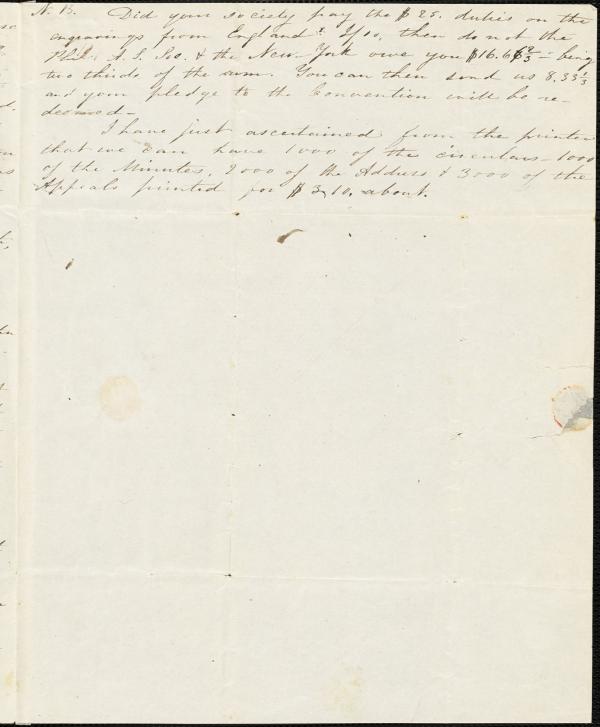 N. B. Did your society pay the $25. duties on the
engravings from England? If so, then do not the
Phil: A. S. Soc. & the New-York owe you $16.66 2/3 - being
two thirds of the sum. You can then send us 8.33 1/3
and your pledge to the Convention will be re-
deemed-
I have just ascertained from the printer
that we can have 1000 of the circulars - 1000
of the Minutes, 2000 of the Address & 3000 of the
Appeals printed for $310, about.